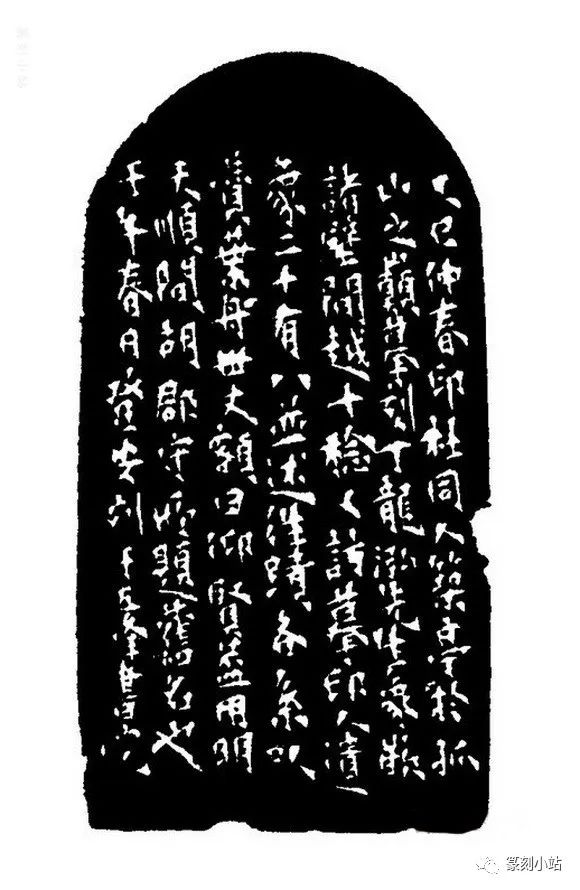 乙巳仲春印社同人築亭於孤
山之巔摹刻丁龍泓先生象嵌
諸壁間越十稔又訪摹印人遺
象二十有八並述往蹟各系以
贊葉舟世丈額曰仰賢蓋用明
天順間胡郡守所題舊名也
壬午春日登安刻于五峯草堂
篆刻小站
篆刻小站